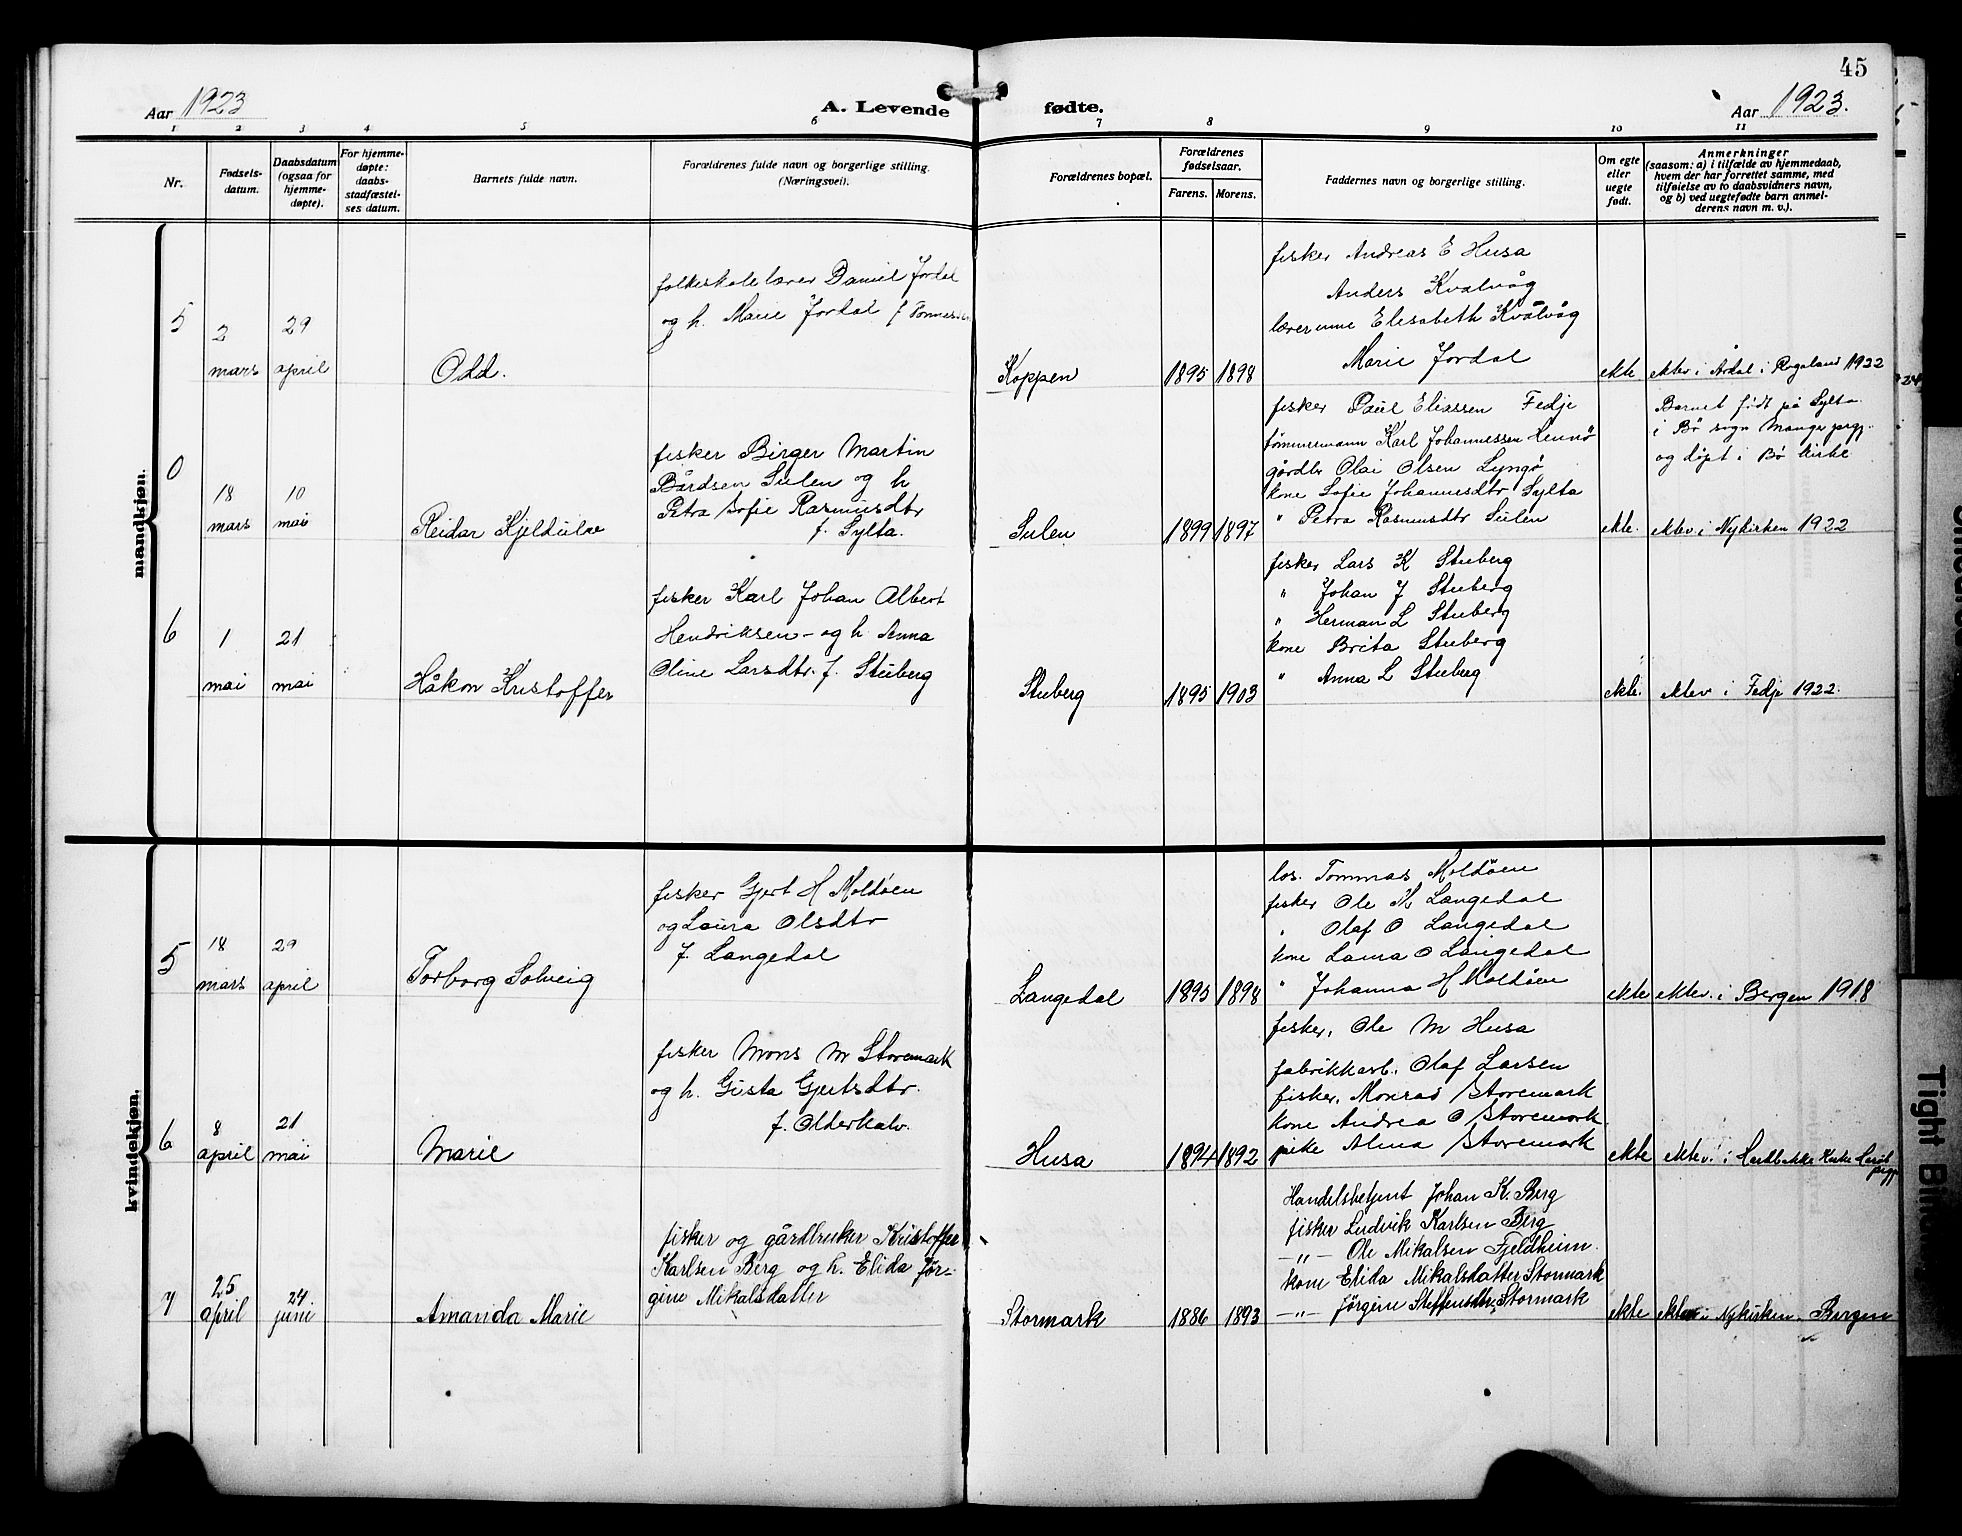 45
Aar 1923
A. Levende fødte.
Aar 1923.
1 2 3 4 5 6 7 8 9 10 11
Nr.
Fødsels-
datum.
Daabsdatum
(ogsaa for
hjemme-
døpte).
For hjemme-
døpte:
daabs-
stadfæstel-
ses datum.
Barnets fulde navn.
Forældrenes fulde navn og borgerlige stilling.
(Næringsvei).
Forældrenes bopæl.
Forældrenes
fødselsaar.
Farens. Morens.
Faddernes navn og borgerlige stilling.
Om egte
eller
uegte
født.
Anmerkninger
(saasom: a) i tilfælde av hjemmedaab,
hvem der har forrettet samme, med
tilføielse av to daabsvidners navn,
og b) ved uegtefødte barn anmel-
derens navn m. v.).
mandkjøn.
5
2
mars
29
april
Odd.
folkeskolelærer Daniel Jordal
og h. Marie Jordal f
Koppen
1895
1898
fisker Andreas E Husa
Anders Kvalvåg
lærerinne Elisabeth Kvalvåg
Marie Jordal
ekte
ektev i Årdal i Rogaland 1922
0
18
mars
10
mai
Reidar
fisker Birger Martin
Bårdsen Sulen og h
Petra Sofie Rasmusdtr
f. Sylta.
Sulen
1899
1897
fisker Paul Eliassen Fedje
tømmermann Karl Johannessen Hennø
gårdbr Olai Olsen Lyngø
kone Sofie Johannesdtr Sylta
" Petra Rasmusdtr Sulen
ekte.
Barnet født på Sylta
i Bø sogn Manger prgj.
og døpt i Bø kirke
ektev i Nykirken 1922
6
1
mai
21
mai
Håkon Kristoffer
fisker Karl Johan Albert
Hendriksen - og h. Anna
Oline Larsdtr. f. Stuberg
Stuberg
1895
1903
fisker Lars K Stuberg
" Johan J Stuberg
" Herman L Stuberg
kone Brita Stuberg
" Anna L Stuberg
ekte.
ektev i Fedje 1922.
kvindekjøn.
5
18
mars
29
april
Torborg Solveig
fisker Gjert H Moldøen
og Laura Olsdtr
f. Langedal
Langedal
1895
1898
los. Tommas Moldøen
fisker Ole K Langedal
" Olaf O Langedal
kone Laura O Langedal
" Johanna H Moldøen
ekte
ektev. i Bergen 1918
6
8
april
21
mai
Marie
fisker Mons M Storemark
og h. Gista Gjertsdtr.
f. Olderkalv.
Husa
1894
1892
fisker, Ole M Husa
fabrikkarb. Olaf Larsen
fisker, Monrad Storemark
kone Andrea O Storemark
pike Alma Storemark
ekte
ektev. i
prgj
7
25
april
24
juni
Amanda Marie
fisker og gårdbruker Kristoffer
Karlsen Berg og h. Elida Jør-
gine Mikalsdatter
Stormark
1886
1893
Handelsbetjent Johan K. Berg
fisker Ludvik Karlsen Berg
-"- Ole Mikalsen Fjeldheim.
kone Elida Mikalsdatter Stormark
-"- Jørgine Steffensdtr. Stormark
ekte
ektev i Nykirken, Bergen
Tight